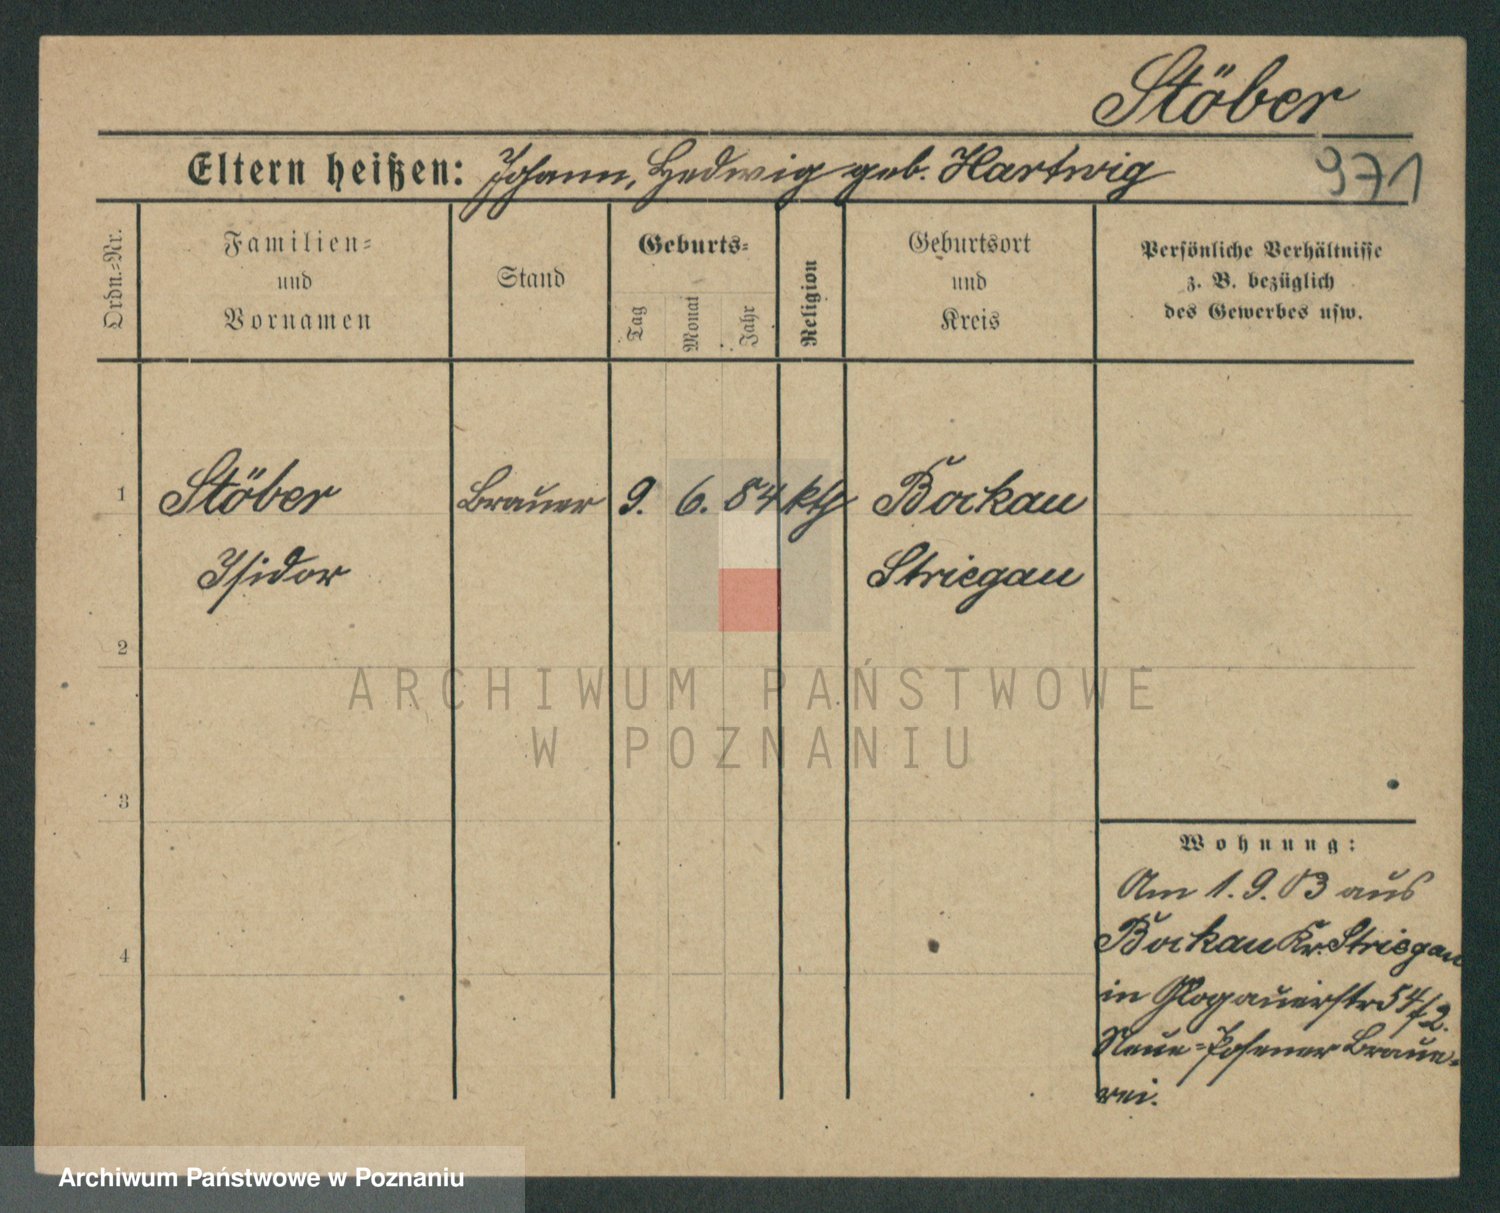 Stöber
Eltern heißen: Johann, Hedwig geb. Hartwig
971
Ordn.-Nr.
Familien-
und
Vornamen
Stand
Geburts-
Tag
Monat
Jahr
Religion
Geburtsort
und
Kreis
Persönliche Verhältnisse
z. B. bezüglich
des Gewerbes usw.
1 Stöber Brauer 9. 6. 84 kth Bockau
Isidor Striegau
2
ARCHIWUM PAŃSTWOWE
W POZNANIU
3
Wohnung:
Am 1.9.03 aus
Bockau Kr. Striegau
4
in Glogauerstr 54/2.
Neue-Posener Braue-
rei.
Archiwum Państwowe w Poznaniu